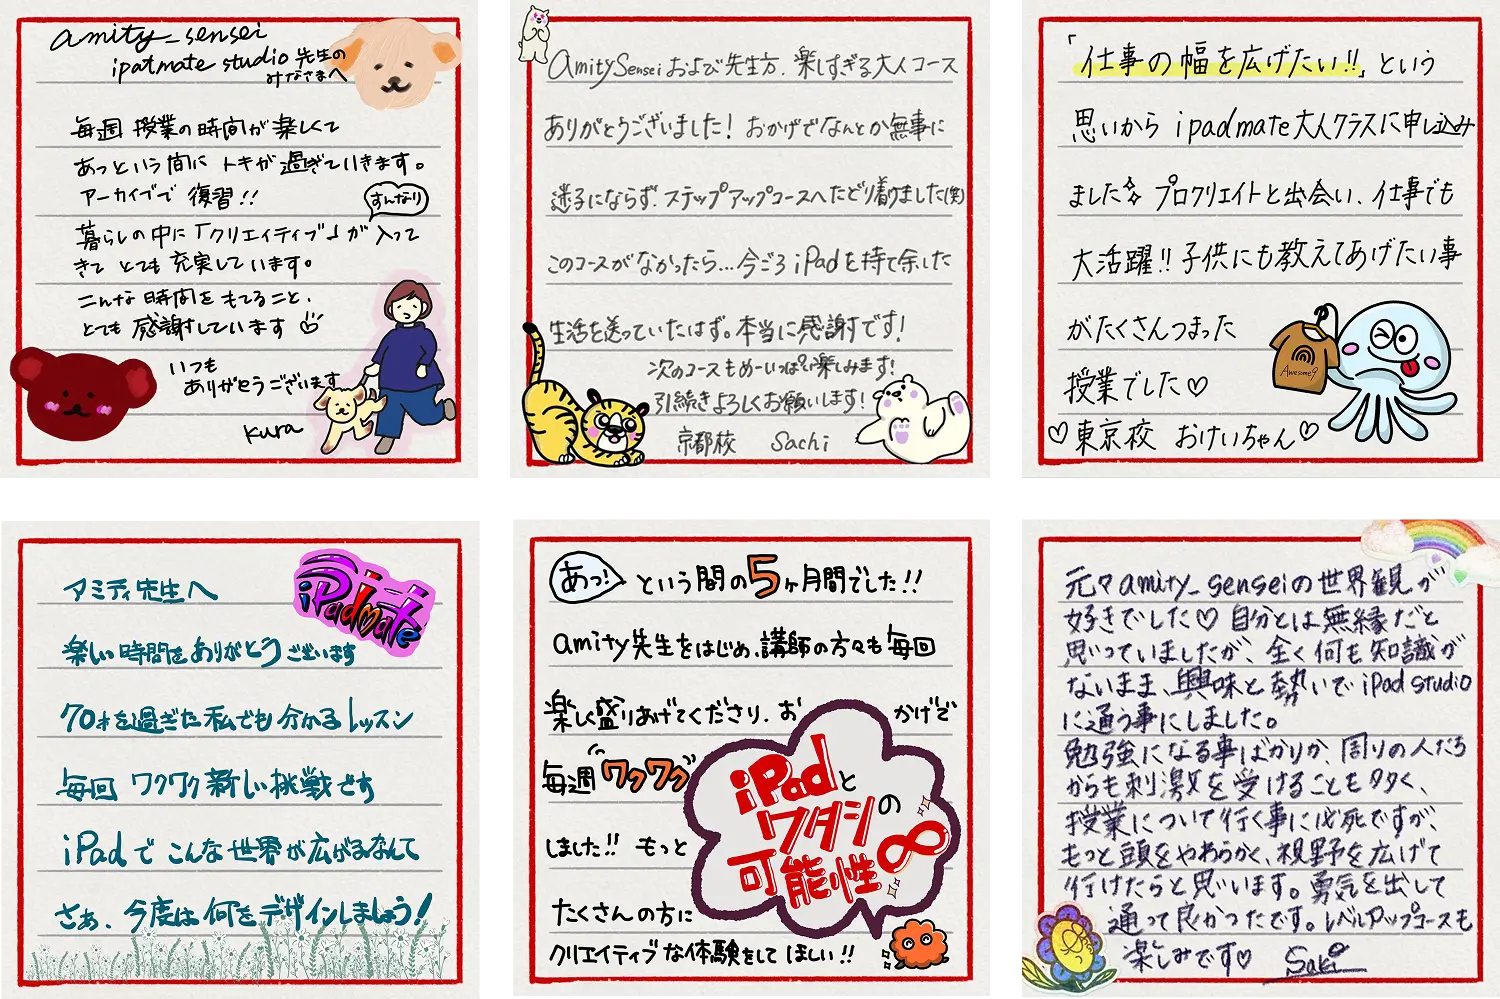 amity_sensei
ipatmate studio 先生の
みなさまへ
毎週 授業の時間が楽しくて
あっという間に トキが過ぎていきます。
アーカイブで 復習!!
すんなり
暮らしの中に「クリエイティブ」が 入って
きて とても 充実しています。
こんな 時間を もてること、
とても 感謝しています♡
いつも
ありがとうございます
kura
amitySensei および 先生方、楽しすぎる大人コース
ありがとうございました! おかげでなんとか無事に
迷子にならず、ステップアップコースへたどり着きました(笑)
このコースがなかったら…今ごろ iPadを持て余した
生活を送っていたはず。本当に感謝です!
次のコースもめーいっぱい楽しみます!
引続きよろしくお願いします!
京都校 Sachi
「仕事の幅を広げたい!!」という
思いから ipadmate大人クラスに申し込み
ました✧ プロクリエイトと出会い、仕事でも
大活躍!! 子供にも教えてあげたい事
がたくさんつまった
授業でした♡
♡東京校 おけいちゃん♡
Awesome9
アミティ先生へ
iPadmate
楽しい時間をありがとうございます
70才を過ぎた私でも分かるレッスン
毎回 ワクワク新しい挑戦です
iPadで こんな世界が広がるなんて
さあ、今度は何をデザインしましょう!
あっ! という間の5ヶ月間でした!!
amity先生をはじめ、講師の方々も毎回
楽しく盛りあげてくださり、おかげで
毎週ワクワク
しました!! もっと
たくさんの方に
クリエイティブな体験をしてほしい!!
iPadと
ワタシの
可能性∞
元々amity_senseiの世界観が
好きでした♡ 自分とは無縁だと
思っていましたが、全く何も知識が
ないまま、興味と勢いで iPad studio
に通う事にしました。
勉強になる事ばかりか、周りの人たち
からも刺激を受けることも多く、
授業について行く事に必死ですが、
もっと頭をやわらかく、視野を広げて
行けたらと思います。勇気を出して
通って良かったです。レベルアップコースも
楽しみです♡ Saki